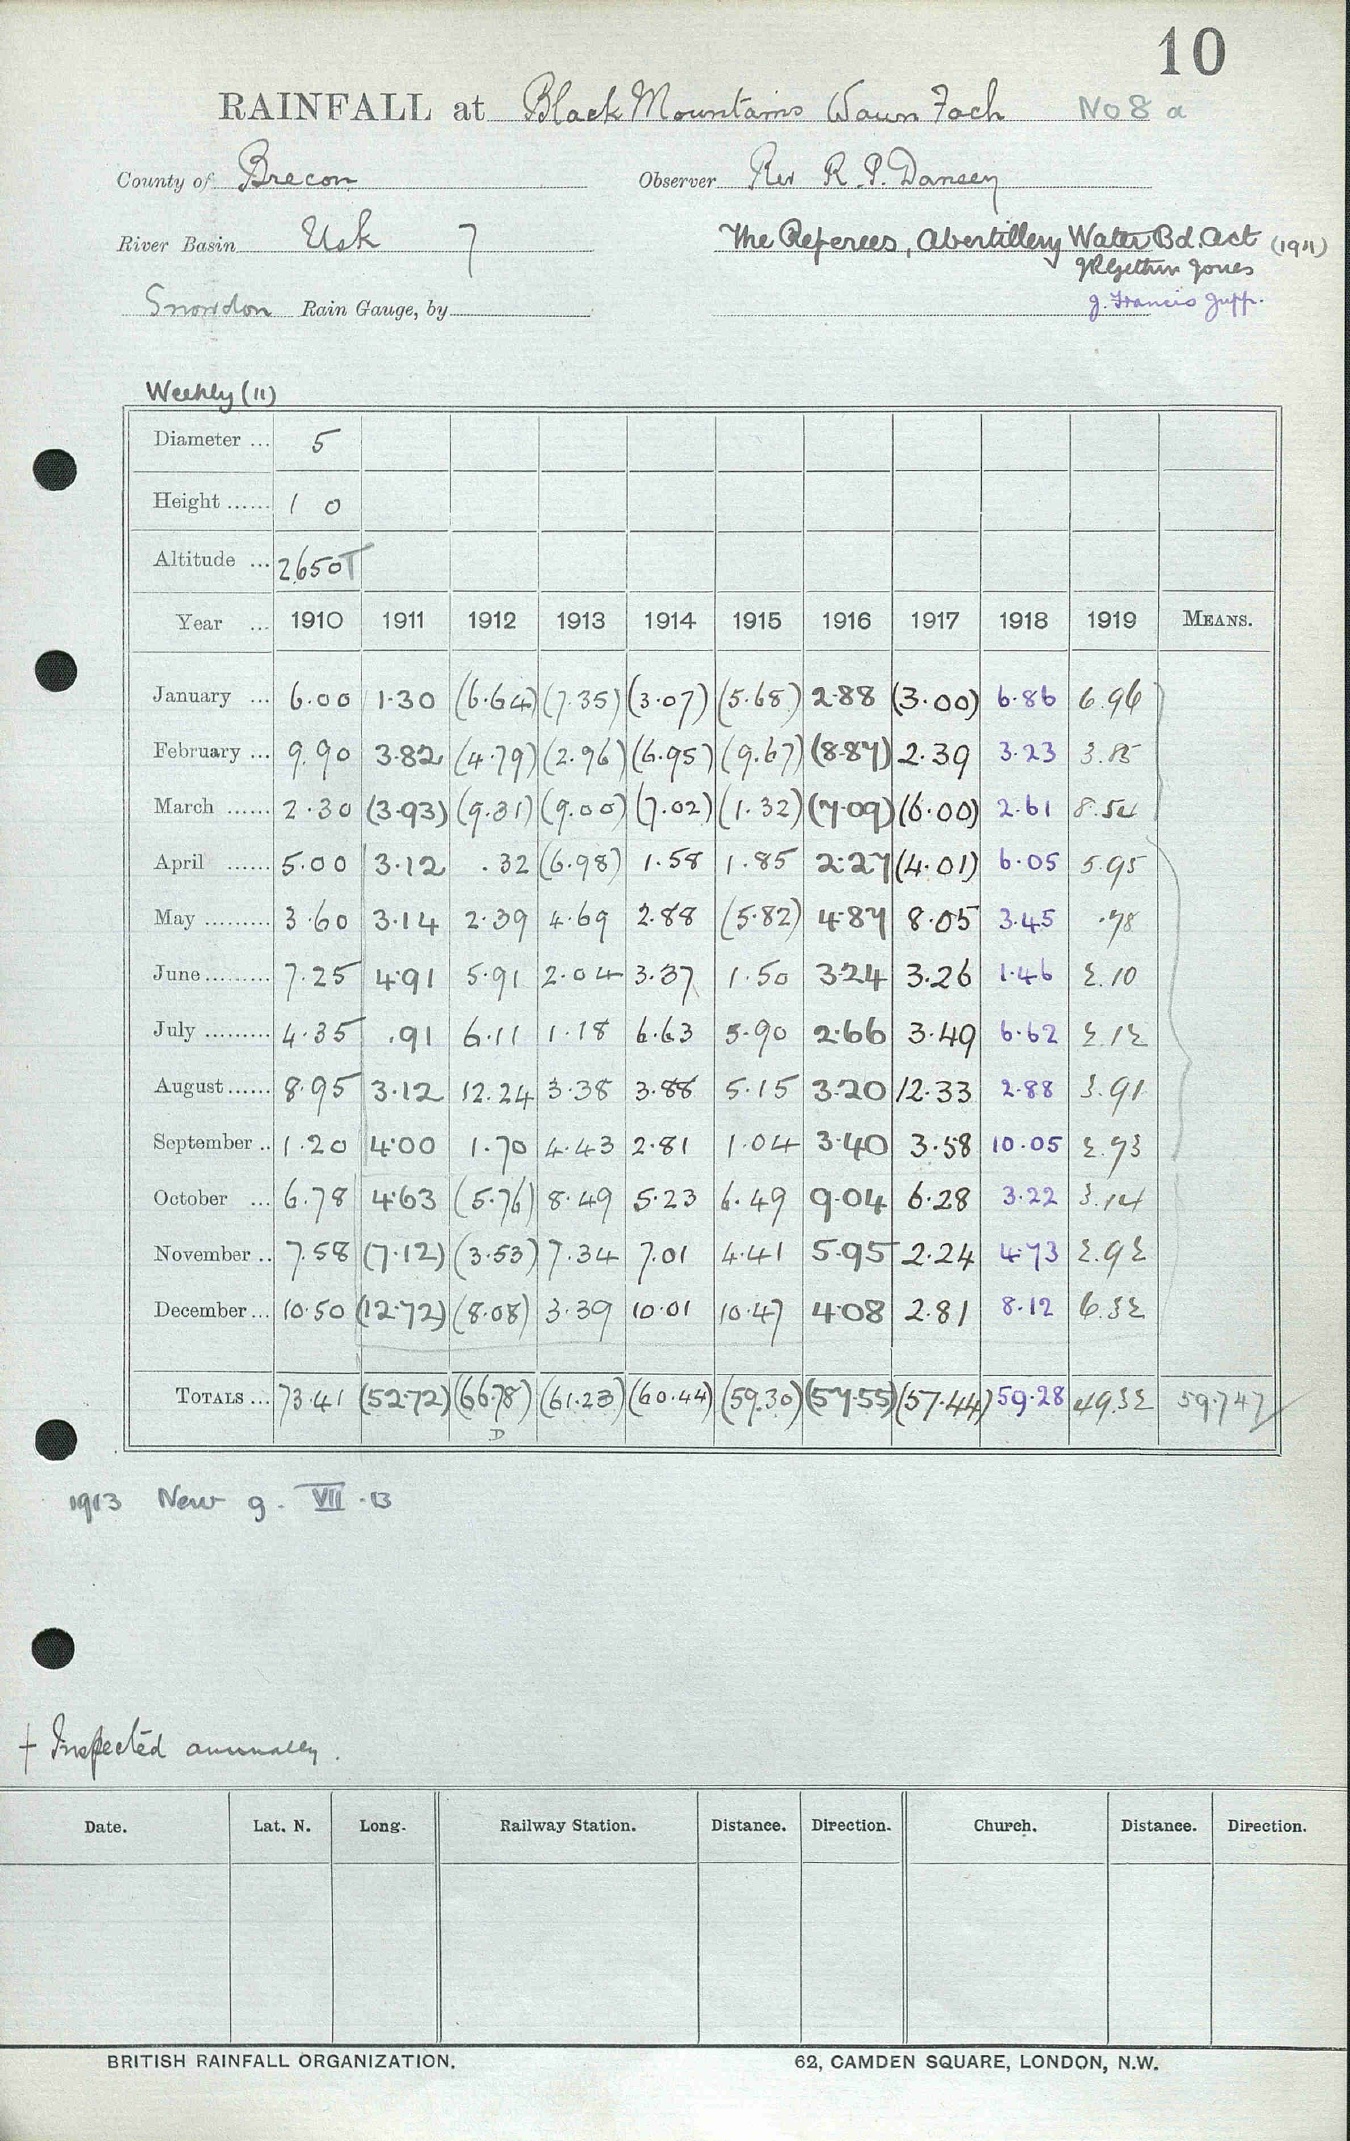 10
RAINFALL at Black Mountains Waun Fach No 8 a
County of Brecon Observer Rev R. P. Dansey
River Basin Usk 7 The Referees, Abertillery Water Bd. Act (1911)
J R Gethin Jones
Snowdon Rain Gauge, by J. Francis Jupp.
Weekly (11)
Diameter ... 5
Height ...... 1 0
Altitude ... 2650T
Year ... 1910 1911 1912 1913 1914 1915 1916 1917 1918 1919 MEANS.
January ... 6.00 1.30 (6.64) (7.35) (3.07) (5.68) 2.88 (3.00) 6.86 6.96
February ... 9.90 3.82 (4.79) (2.96) (6.95) (9.67) (8.87) 2.39 3.23 3.85
March ...... 2.30 (3.93) (9.31) (9.00) (7.02) (1.32) (7.09) (6.00) 2.61 8.54
April ...... 5.00 3.12 .32 (6.98) 1.58 1.85 2.27 (4.01) 6.05 5.95
May ......... 3.60 3.14 2.39 4.69 2.88 (5.82) 4.87 8.05 3.45 .78
June ......... 7.25 4.91 5.91 2.04 3.37 1.50 3.24 3.26 1.46 2.10
July ......... 4.35 .91 6.11 1.18 6.63 5.90 2.66 3.49 6.62 2.12
August ...... 8.95 3.12 12.24 3.38 3.88 5.15 3.20 12.33 2.88 3.91
September .. 1.20 4.00 1.70 4.43 2.81 1.04 3.40 3.58 10.05 2.73
October ... 6.78 4.63 (5.76) 8.49 5.23 6.49 9.04 6.28 3.22 3.14
November .. 7.58 (7.12) (3.53) 7.34 7.01 4.41 5.95 2.24 4.73 2.92
December ... 10.50 (12.72) (8.08) 3.39 10.01 10.47 4.08 2.81 8.12 6.32
TOTALS ... 73.41 (52.72) (66.78) (61.23) (60.44) (59.30) (57.55) (57.44) 59.28 49.32 59.747
D
1913 New g. VII .13
† Inspected annually.
Date. Lat. N. Long. Railway Station. Distance. Direction. Church. Distance. Direction.
BRITISH RAINFALL ORGANIZATION. 62, CAMDEN SQUARE, LONDON, N.W.